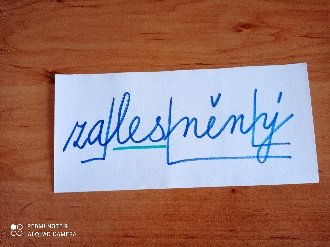 zalesněný
REDMI NOTE 9
AI QUAD CAMERA